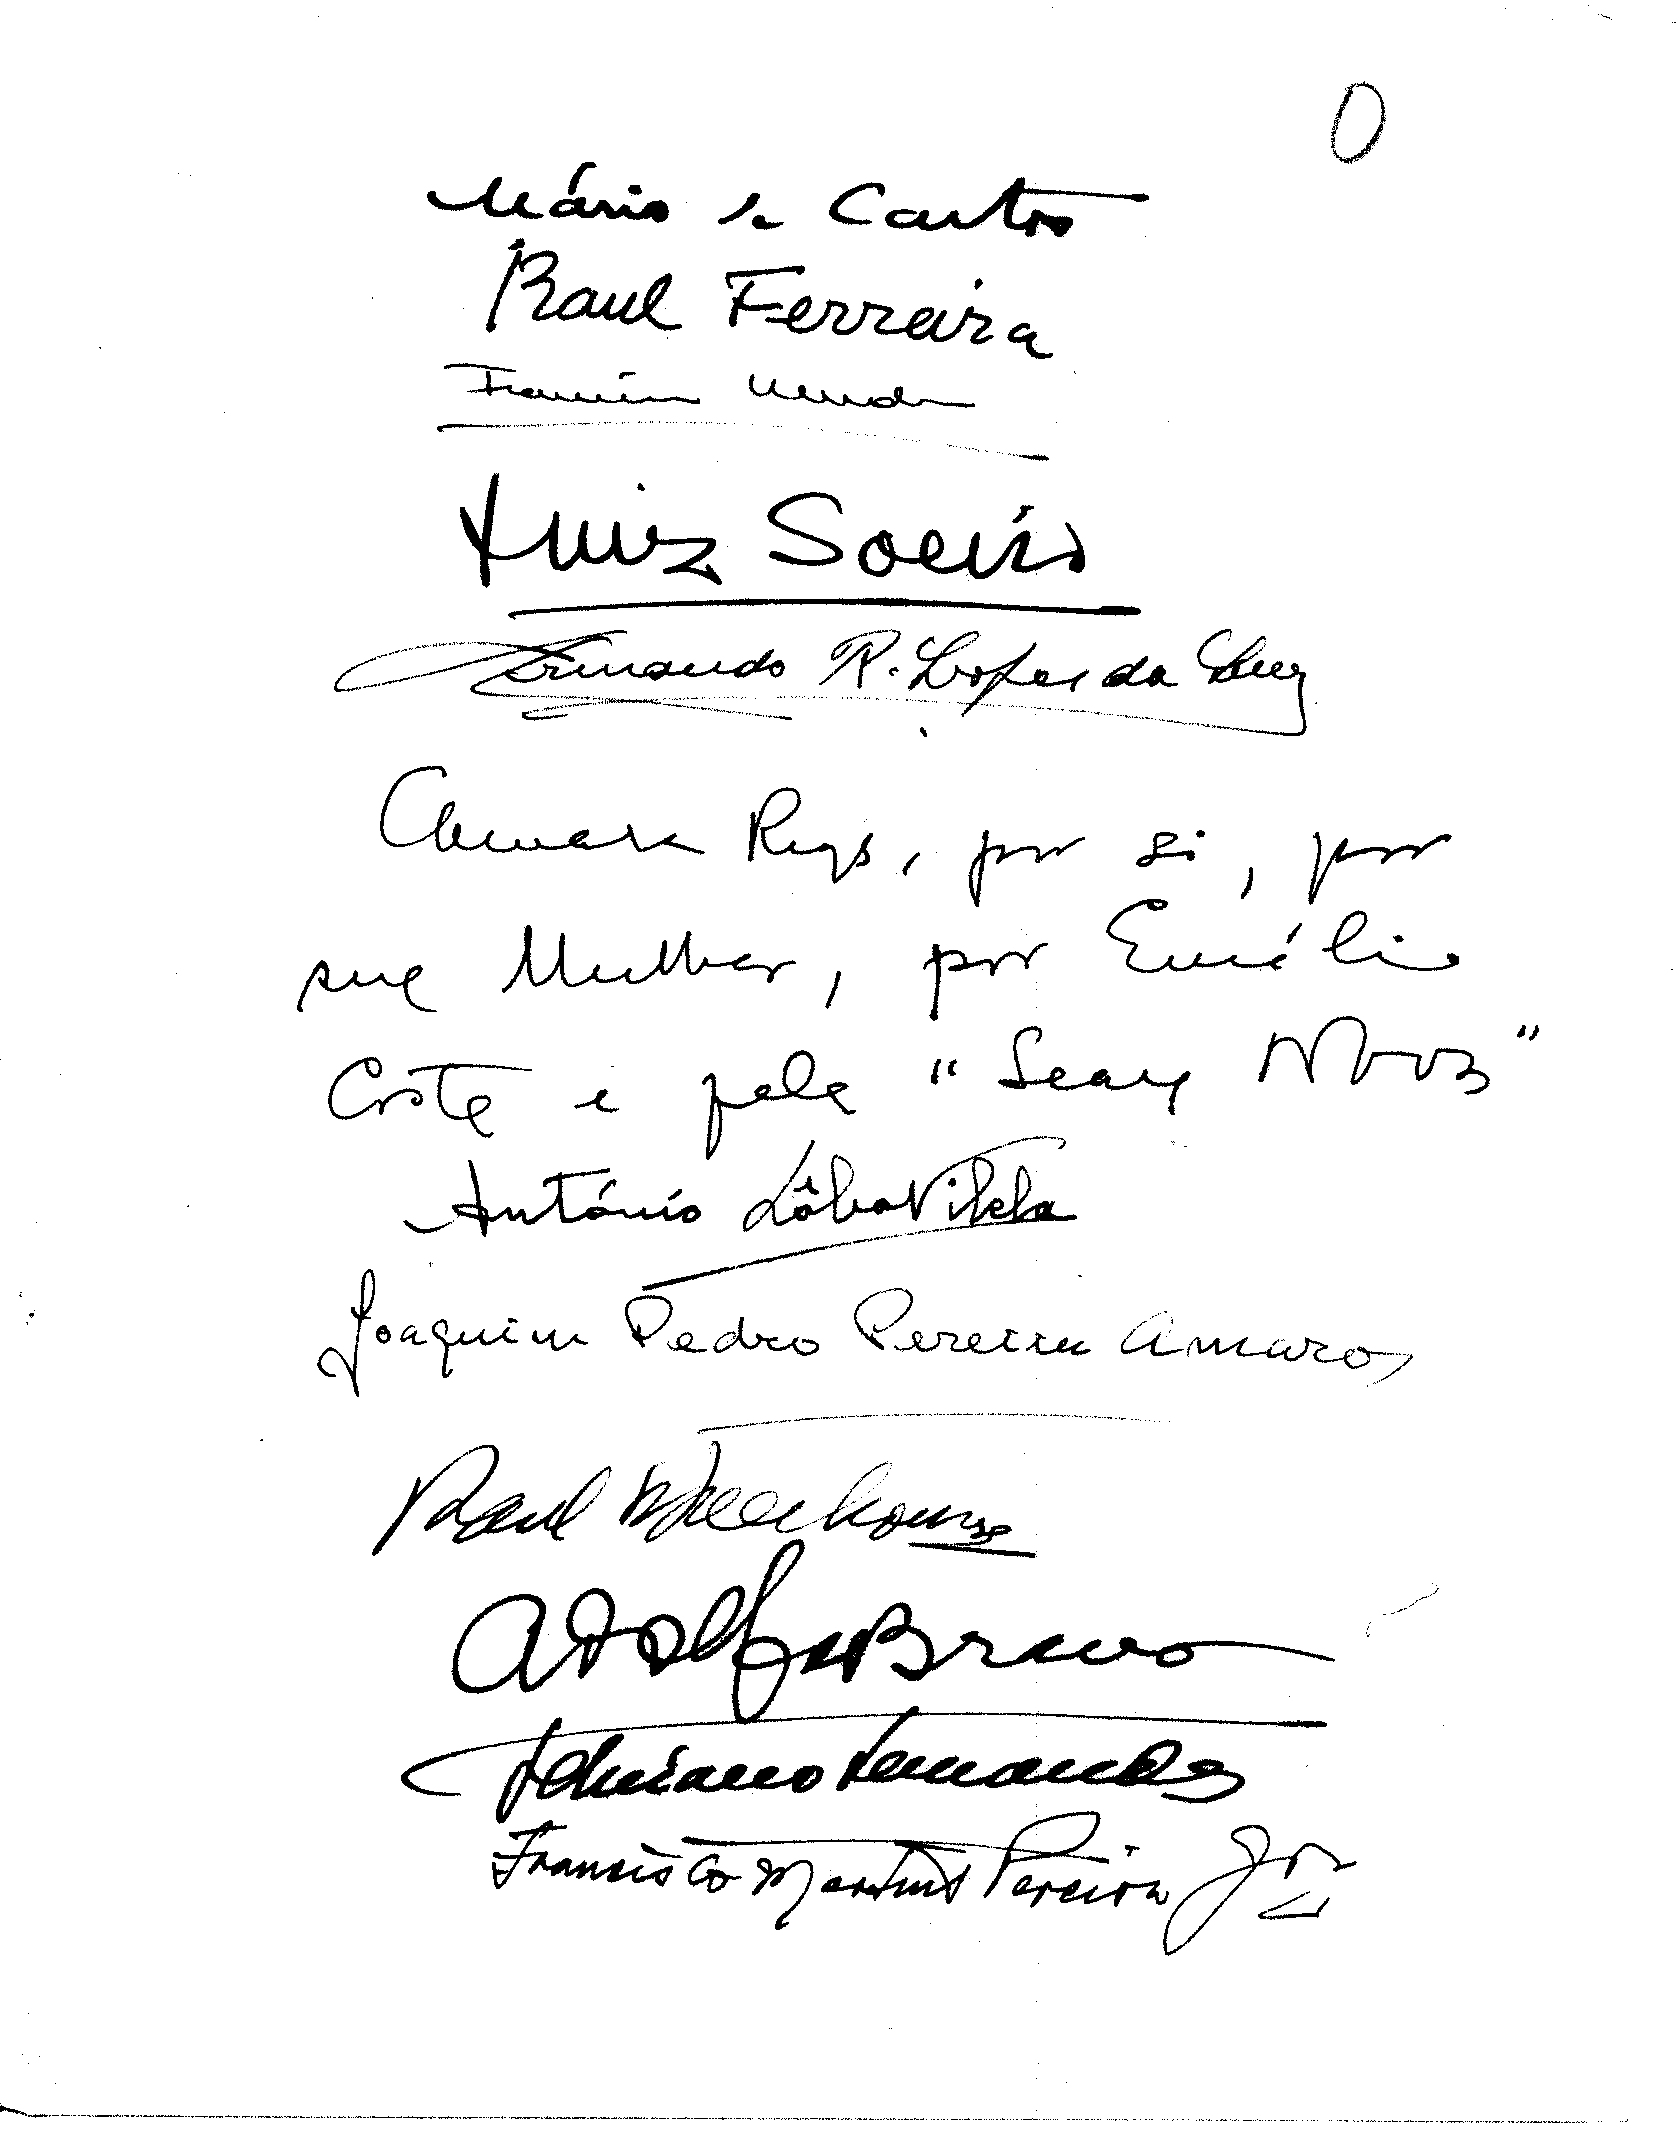 0
Mário de Castro
Raul Ferreira
Luiz Soeiro
Armando R. Lopes da Cruz
Camara Reys, por si, por
sua Mulher, por Emílio
Costa e pela "Seara Nova"
António Lôbo Vilela
Joaquim Pedro Pereira Amaro
Raul
Adolfo Bravo
Adriano Fernandes
Francisco Martins Pereira Jor